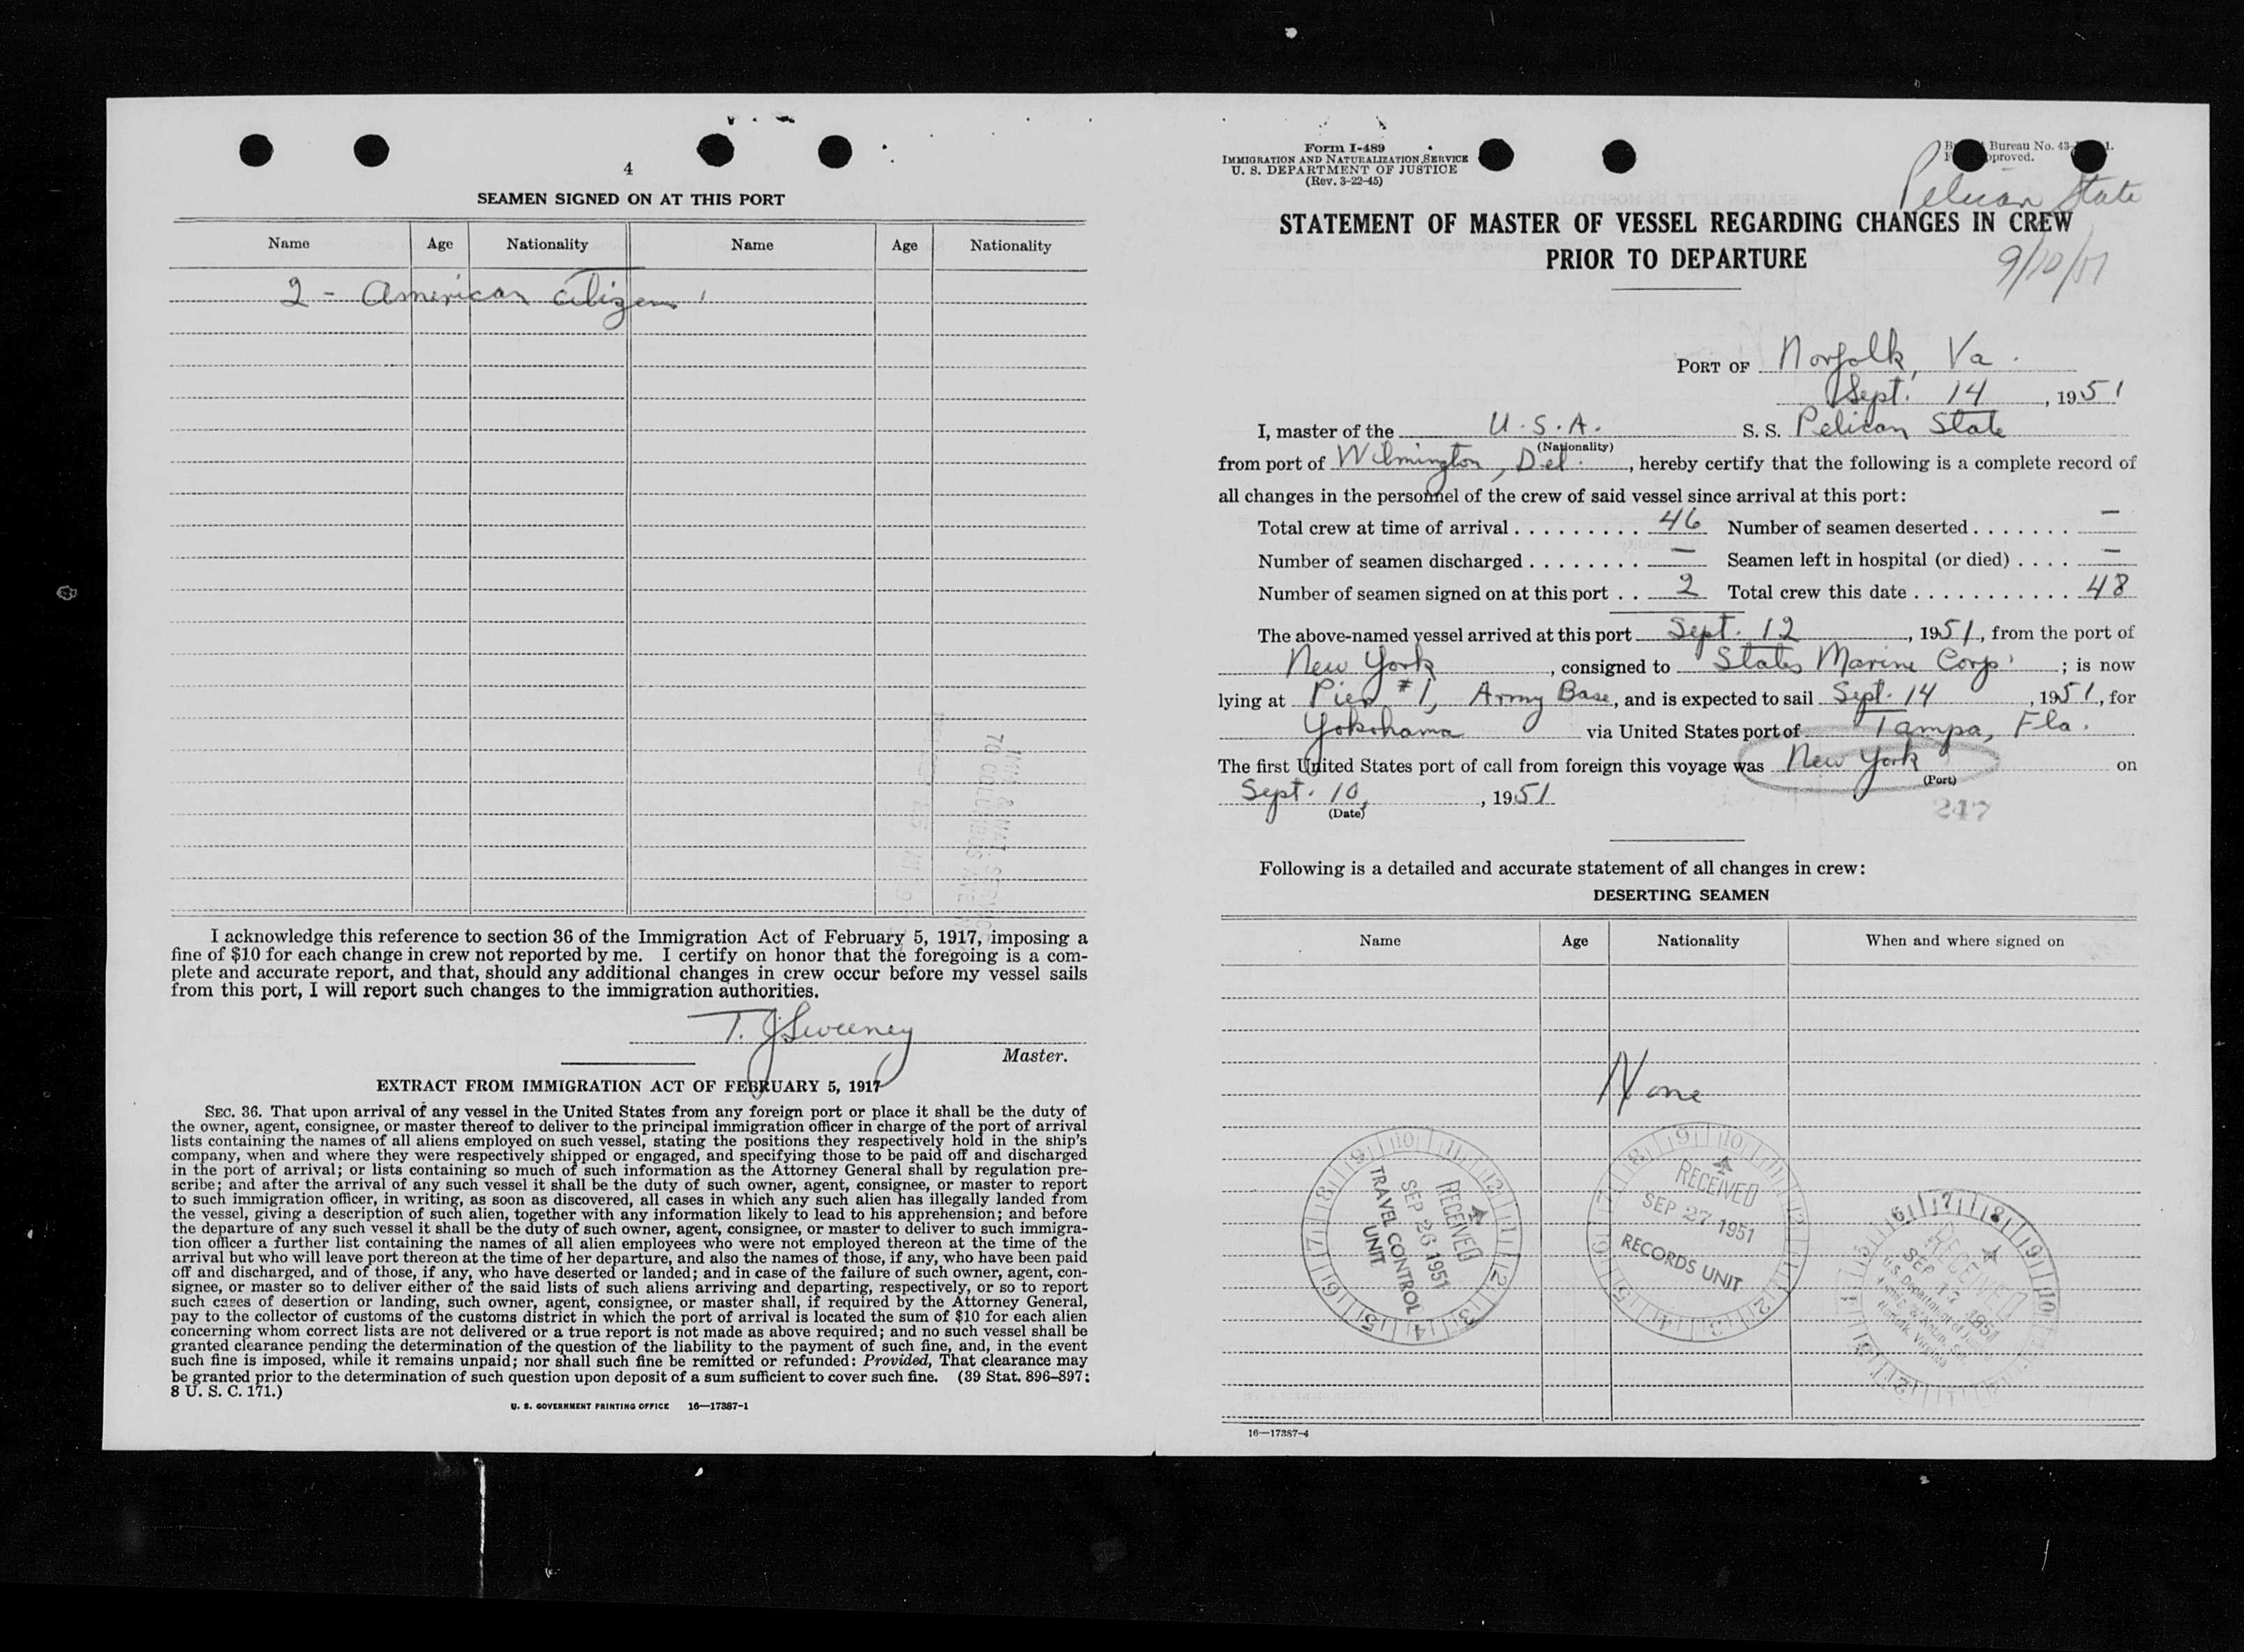 4
SEAMEN SIGNED ON AT THIS PORT
Name Age Nationality Name Age Nationality
2 - American citizens
I acknowledge this reference to section 36 of the Immigration Act of February 5, 1917, imposing a
fine of $10 for each change in crew not reported by me. I certify on honor that the foregoing is a com-
plete and accurate report, and that, should any additional changes in crew occur before my vessel sails
from this port, I will report such changes to the immigration authorities.
T. J Sweeney
Master.
EXTRACT FROM IMMIGRATION ACT OF FEBRUARY 5, 1917
SEC. 36. That upon arrival of any vessel in the United States from any foreign port or place it shall be the duty of
the owner, agent, consignee, or master thereof to deliver to the principal immigration officer in charge of the port of arrival
lists containing the names of all aliens employed on such vessel, stating the positions they respectively hold in the ship's
company, when and where they were respectively shipped or engaged, and specifying those to be paid off and discharged
in the port of arrival; or lists containing so much of such information as the Attorney General shall by regulation pre-
scribe; and after the arrival of any such vessel it shall be the duty of such owner, agent, consignee, or master to report
to such immigration officer, in writing, as soon as discovered, all cases in which any such alien has illegally landed from
the vessel, giving a description of such alien, together with any information likely to lead to his apprehension; and before
the departure of any such vessel it shall be the duty of such owner, agent, consignee, or master to deliver to such immigra-
tion officer a further list containing the names of all alien employees who were not employed thereon at the time of the
arrival but who will leave port thereon at the time of her departure, and also the names of those, if any, who have been paid
off and discharged, and of those, if any, who have deserted or landed; and in case of the failure of such owner, agent, con-
signee, or master so to deliver either of the said lists of such aliens arriving and departing, respectively, or so to report
such cases of desertion or landing, such owner, agent, consignee, or master shall, if required by the Attorney General,
pay to the collector of customs of the customs district in which the port of arrival is located the sum of $10 for each alien
concerning whom correct lists are not delivered or a true report is not made as above required; and no such vessel shall be
granted clearance pending the determination of the question of the liability to the payment of such fine, and, in the event
such fine is imposed, while it remains unpaid; nor shall such fine be remitted or refunded: Provided, That clearance may
be granted prior to the determination of such question upon deposit of a sum sufficient to cover such fine. (39 Stat. 896-897;
8 U. S. C. 171.)
U. S. GOVERNMENT PRINTING OFFICE 16—17387-1
Form I-489
IMMIGRATION AND NATURALIZATION SERVICE
U. S. DEPARTMENT OF JUSTICE
(Rev. 3-22-45)
Bureau No. 43-
Pelican State
STATEMENT OF MASTER OF VESSEL REGARDING CHANGES IN CREW
PRIOR TO DEPARTURE
9/10/51
PORT OF Norfolk, Va.
Sept. 14, 1951
I, master of the U.S.A. S. S. Pelican State
(Nationality)
from port of Wilmington, Del., hereby certify that the following is a complete record of
all changes in the personnel of the crew of said vessel since arrival at this port:
Total crew at time of arrival 46 Number of seamen deserted —
Number of seamen discharged — Seamen left in hospital (or died) —
Number of seamen signed on at this port 2 Total crew this date 48
The above-named vessel arrived at this port Sept. 12, 1951, from the port of
New York, consigned to States Marine Corp.; is now
lying at Pier #1, Army Base, and is expected to sail Sept. 14, 1951, for
Yokohama via United States port of Tampa, Fla.
The first United States port of call from foreign this voyage was New York on
(Port)
Sept. 10, 1951
(Date)
247
Following is a detailed and accurate statement of all changes in crew:
DESERTING SEAMEN
Name Age Nationality When and where signed on
None
RECEIVED
SEP 26 1951
TRAVEL CONTROL
UNIT
RECEIVED
SEP 27 1951
RECORDS UNIT
RECEIVED
SEP 17 1951
U.S. Department of Justice
Norfolk, Virginia
16—17387-4